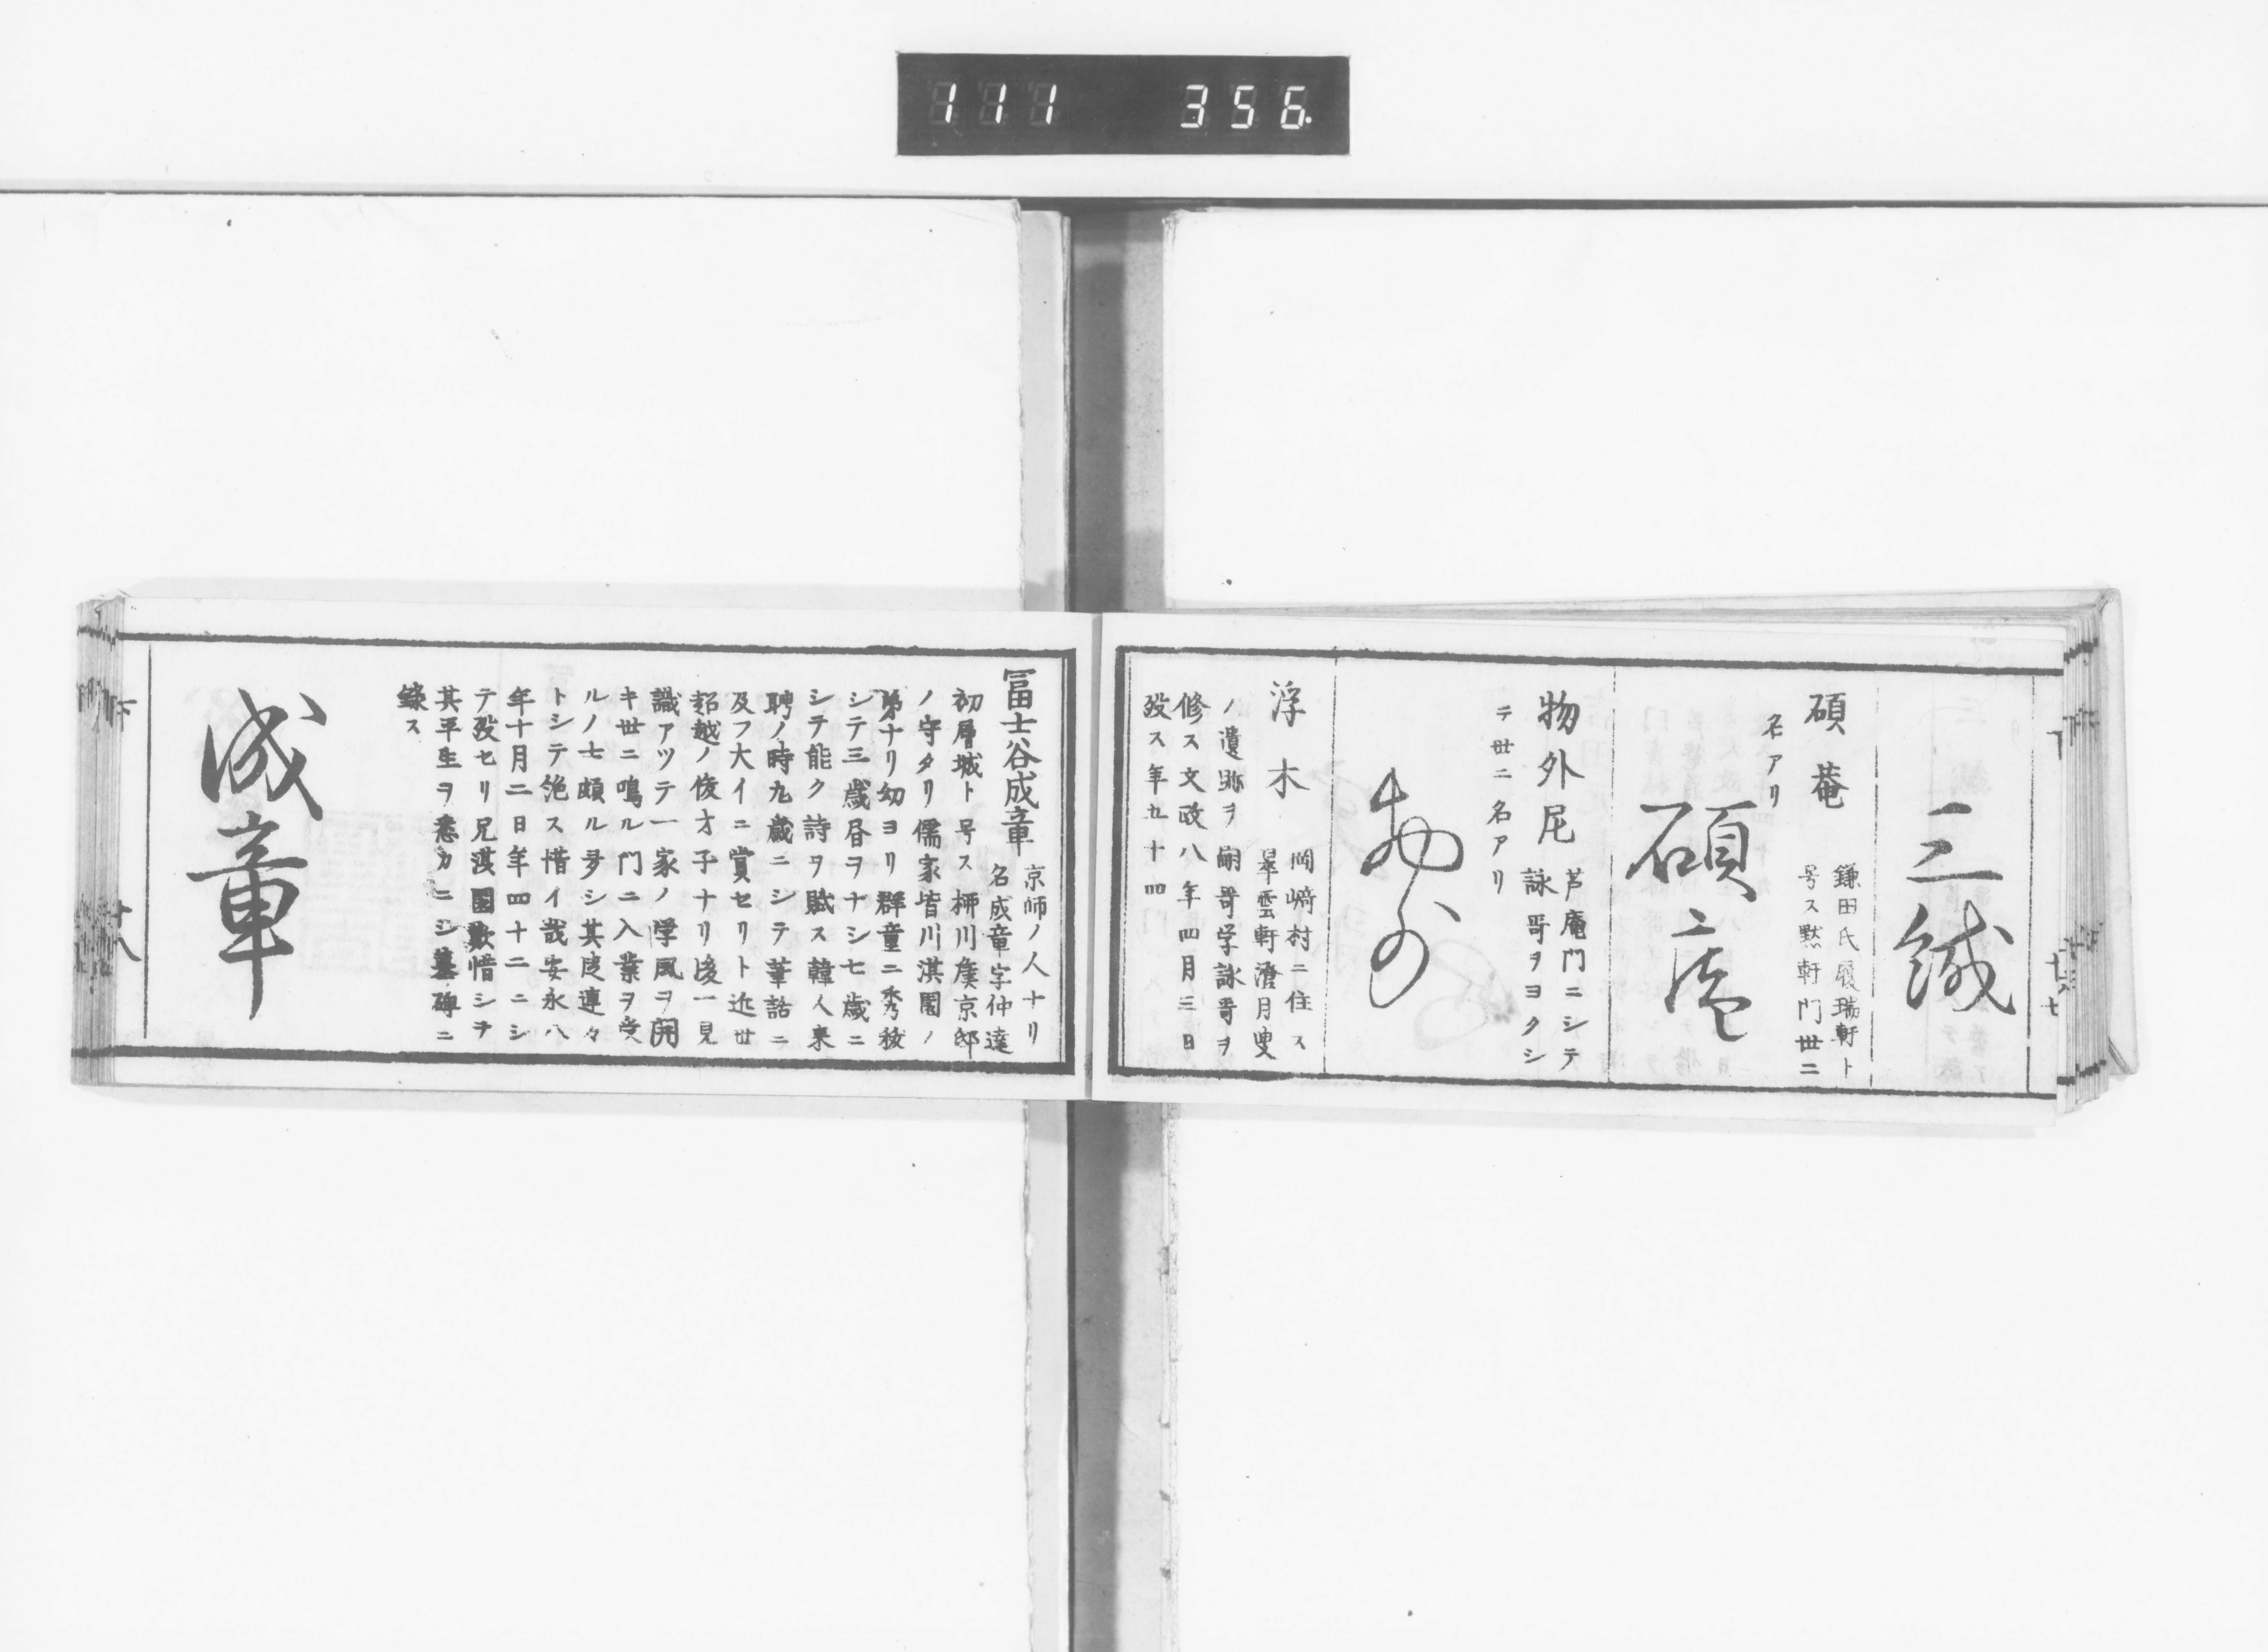 111 356.
三鍼
碩菴 鎌田氏履瑞軒ト
号ス黙軒門世ニ
名アリ
碩庵
物外尼 芦庵門ニシテ
詠哥ヲヨクシ
テ世ニ名アリ
物外
浮木 岡﨑村ニ住ス
翠雲軒澄月叟
ノ遺跡ヲ嗣哥学詠哥ヲ
修ス文政八年四月三日
歿ス年九十四
冨士谷成章 京師ノ人ナリ
名成章字仲達
初層城ト号ス柳川矦京邸
ノ守タリ儒家皆川淇園ノ
弟ナリ幼ヨリ群童ニ秀拔
シテ三歳昼ヲナシ七歳ニ
シテ能ク詩ヲ賦ス韓人来
聘ノ時九歳ニシテ筆話ニ
及フ大イニ賞セリト近世
超越ノ俊才子ナリ後一見
識アツテ一家ノ学風ヲ開
キ世ニ鳴ル門ニ入業ヲ受
ルノ士頗ル多シ其后連々
トシテ絶ス惜イ哉安永八
年十月二日年四十二ニシ
テ歿セリ兄淇園歎惜シテ
其平生ヲ悉カニシ墓碑ニ
錄ス
成章
下 十八